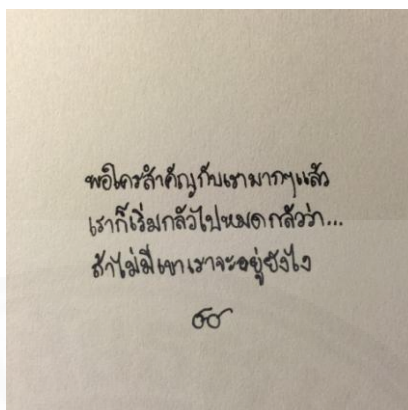 พอใครสำคัญกับเรามากๆแล้ว
เราก็เริ่มกลัวไปหมดกลัวว่า...
ถ้าไม่มีเขาเราจะอยู่ยังไง